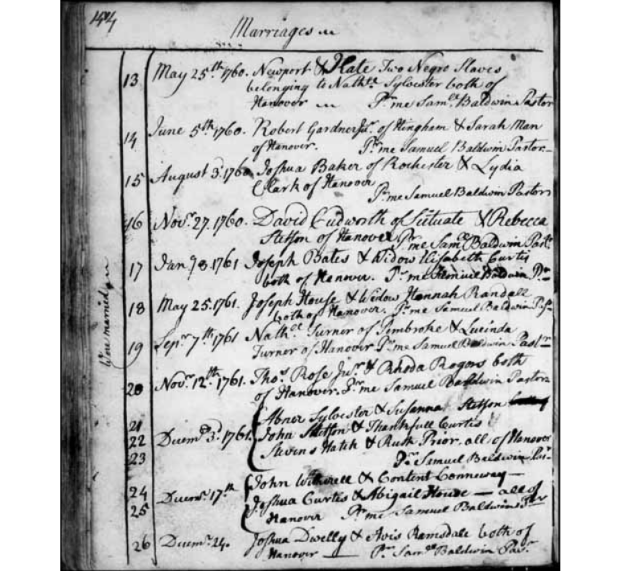 144
Marriages
13 May 25th 1760. Newport & Kate Two Negro Slaves
belonging to Nathll Sylvester both of
Hanover Pr me Samll Baldwin Pastor
14 June 5th 1760. Robert Gardner Junr. of Hingham & Sarah Man
of Hanover. Pr me Samuel Baldwin Pastor
15 August 3d. 1760 Joshua Baker of Rochester & Lydia
Clark of Hanover
Pr me Samuel Baldwin Pastor
16 Novr. 27. 1760. David Cudworth of Scituate & Rebecca
Stetson of Hanover Pr me Samll Baldwin Pastr
17 Jany 8 1761 Joseph Bates & Widow Elisabeth Curtis
both of Hanover. Pr me Samuel Baldwin Pr
18 May 25. 1761. Joseph House & Widow Hannah Randall
both of Hanover. Pr me Samuel Baldwin Pastr
19 Sepr 7th 1761 Nathll Turner of Pembroke & Lucinda
Turner of Hanover Pr me Samuel Baldwin Pastr
20 Novr. 12th. 1761. Thos Rose Junr. & Rhoda Rogers both
of Hanover. Pr me Samuel Baldwin Pastor
21 Abner Sylvester & Susanna Stetson
22 Decemr. 3d. 1761. John Stetson & Thankfull Curtis
23 Stevens Hatch & Ruth Prior. all of Hanover
Pr Samuel Baldwin Pastr
24 Decemr. 17th John Witherell & Content Conneway
25 Joshua Curtis & Abigail House all of
Hanover Pr me Samuel Baldwin Pastr
26 Decemr. 24. Joshua Dwelly & Avis Ramsdale both of
Hanover Pr Samll Baldwin Pasr.
married